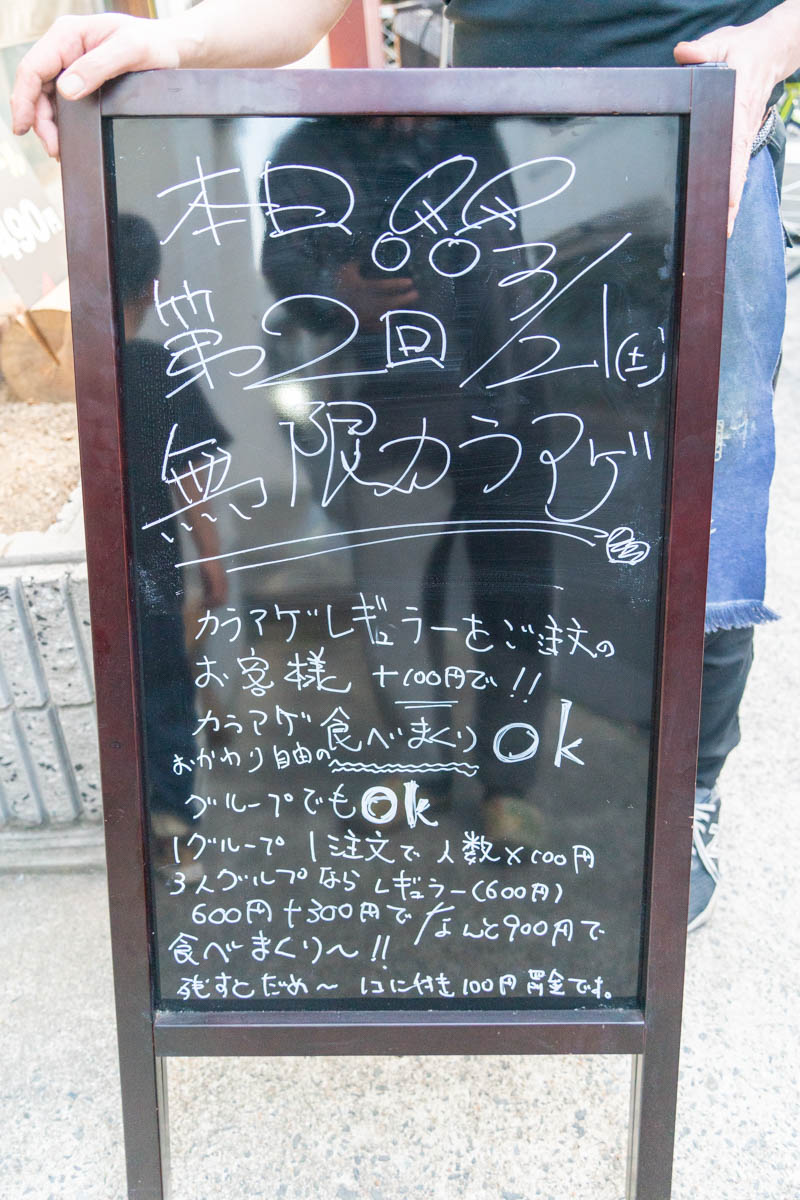 本日
第2回 3/21(土)
無限カラアゲ
カラアゲレギュラーをご注文の
お客様 +100円で!!
カラアゲ食べまくりOk
おかわり自由の
グループでもOk
1グループ 1注文で人数×100円
3人グループならレギュラー(600円)
600円+300円でなんと900円で
食べまくり〜!!
残すとだめ〜 1コにつき100円罰金です。
490円